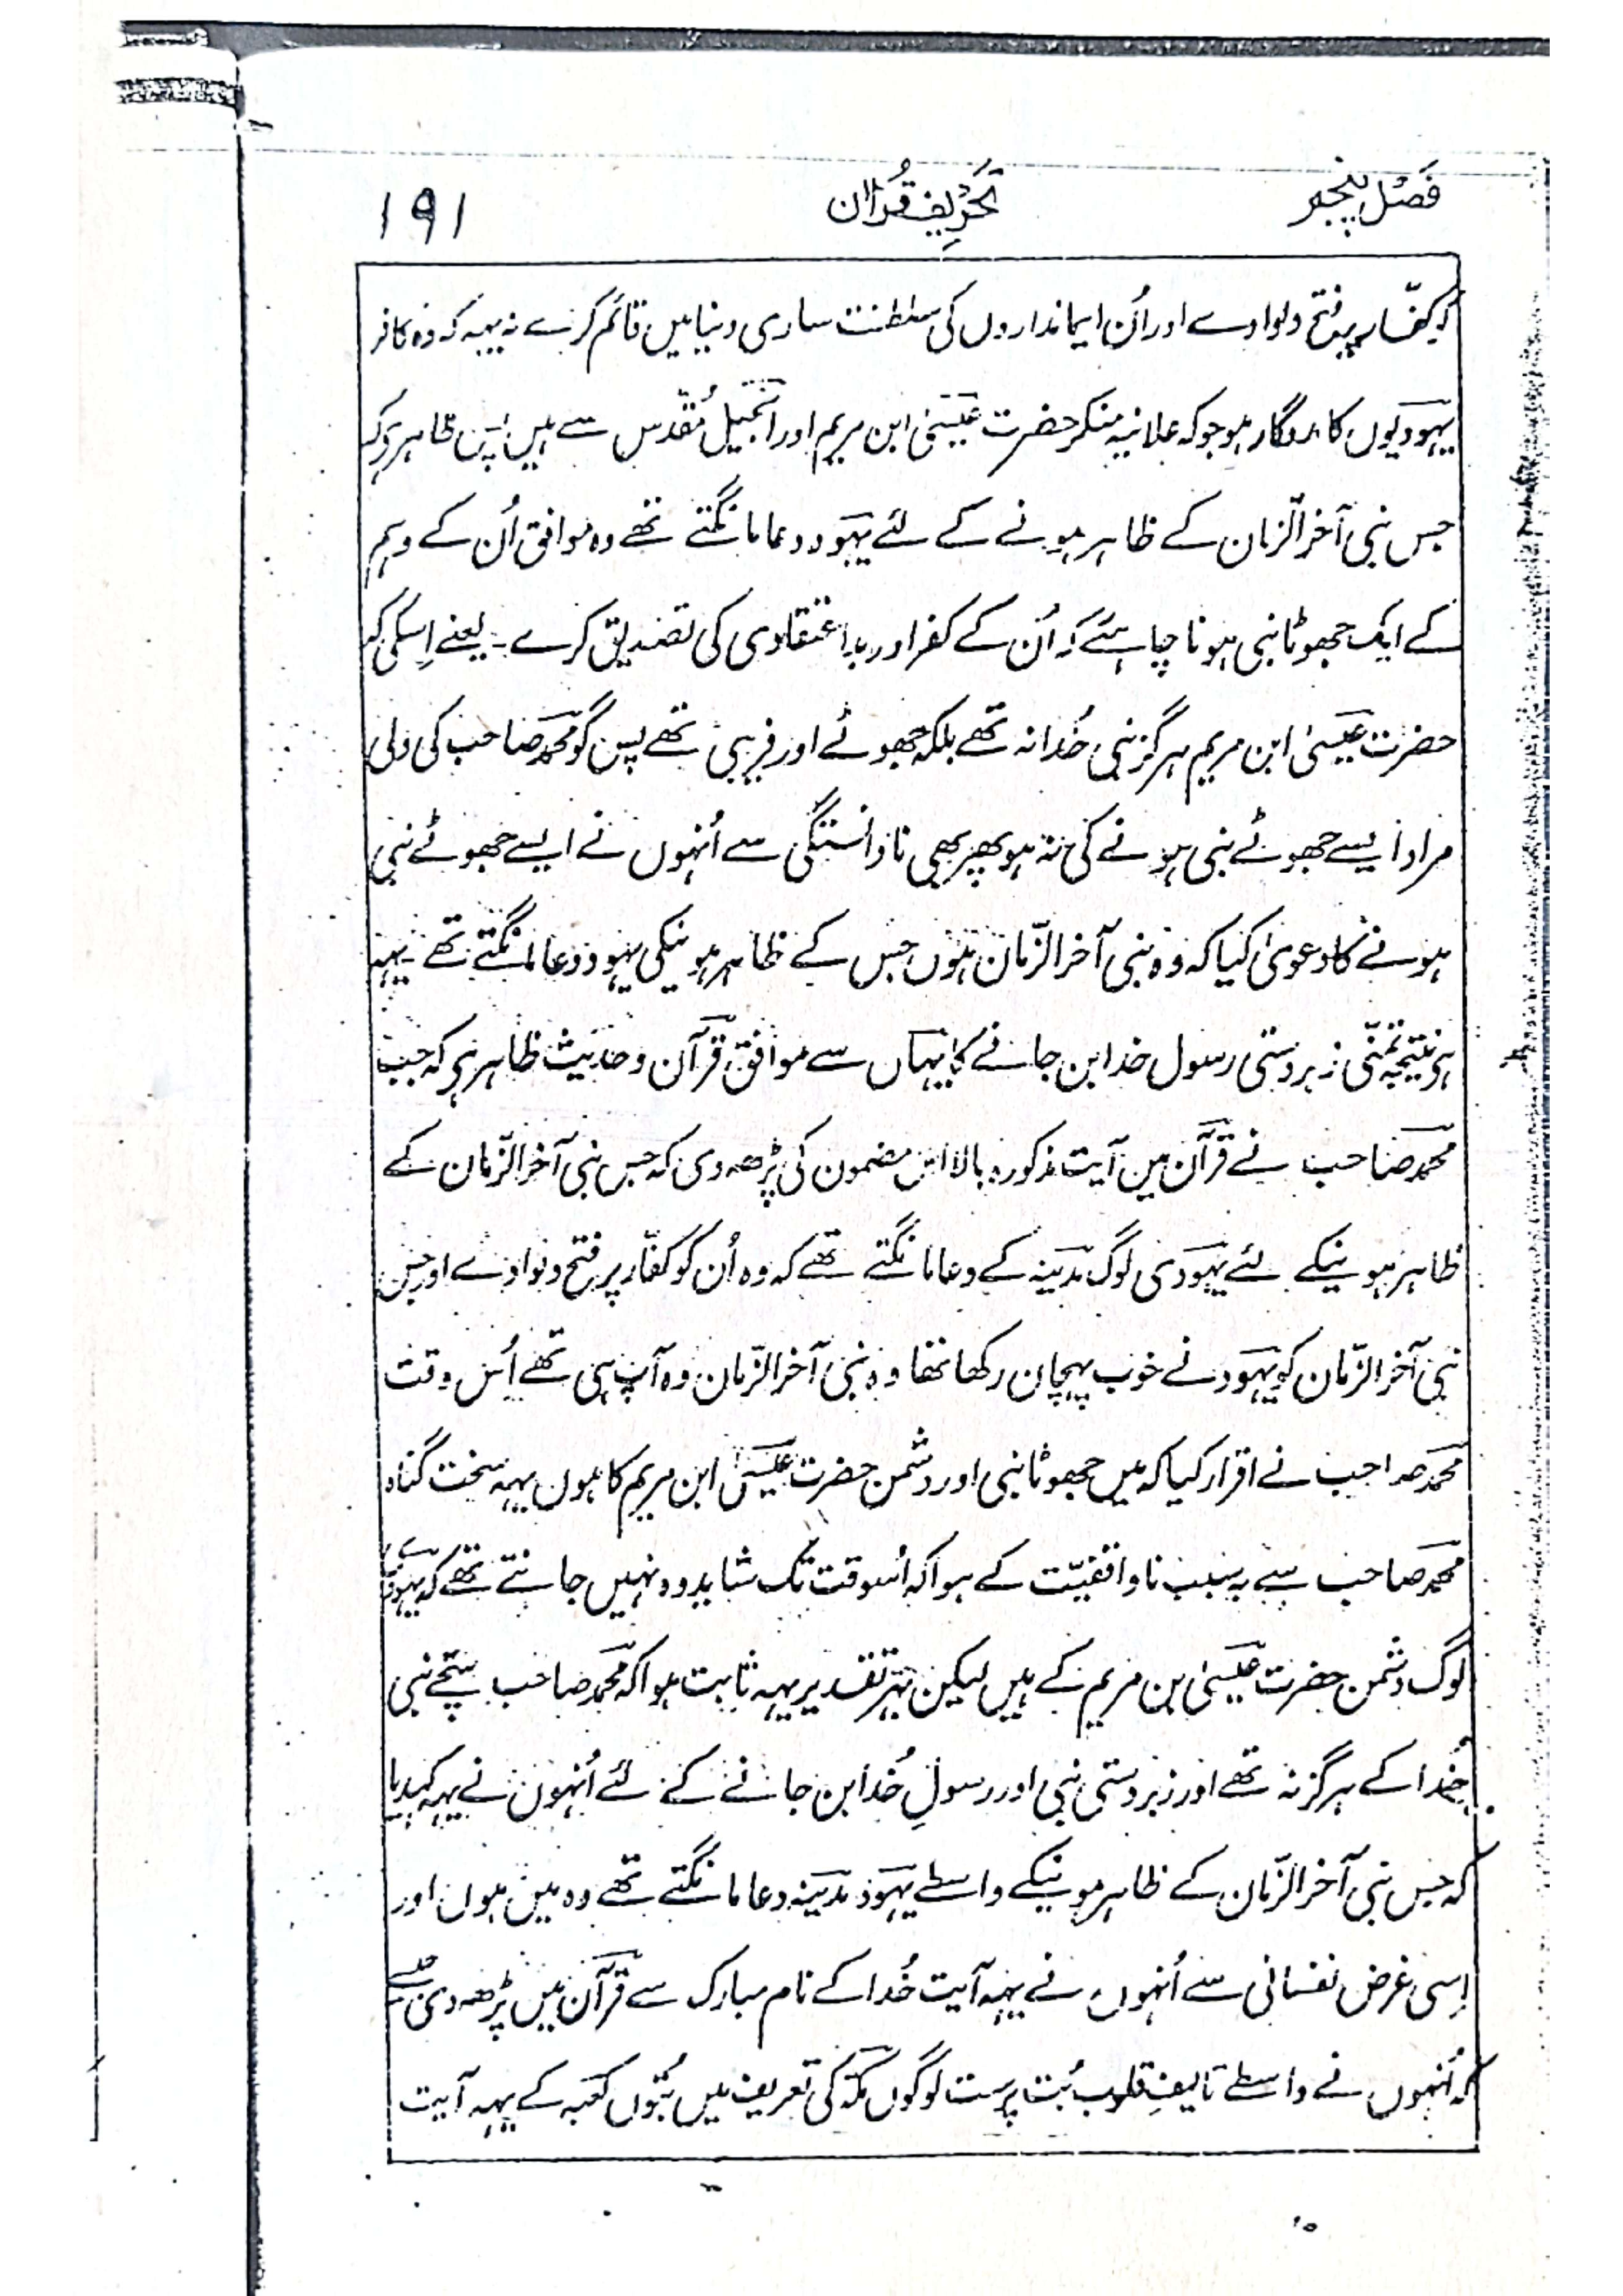 فصل پنجم
تحریف قرآن
۱۹۱
کہ کفّار پر فتح دلوادے اور اُن ایمانداروں کی سلطنت ساری دنیا میں قائم کرے نہ یہہ کہ وہ کافر
یہودیوں کا مددگار ہو جو کہ علانیہ منکر حضرت عیسیٰ ابن مریم اور انجیل مُقدّس سے ہیں پس ظاہر ہے کہ
جس نبی آخر الزّمان کے ظاہر ہونے کے لئے یہود دعا مانگتے تھے وہ موافق اُن کے وہم
کے ایک جھوٹا نبی ہونا چاہئے کہ اُن کے کفر اور بد اعتقادی کی تصدیق کرے ۔ یعنے اِسکی کہ
حضرت عیسیٰ ابن مریم ہرگز نبی خُدا نہ تھے بلکہ جھوٹے اور فریبی تھے پس گو محمّد صاحب کی دلی
مراد ایسے جھوٹے نبی ہونے کی نہ ہو پھر بھی نادانستگی سے اُنہوں نے ایسے جھوٹے نبی
ہونے کا دعویٰ کیا کہ وہ نبی آخر الزّمان ہوں جس کے ظاہر ہونیکی یہود دعا مانگتے تھے ۔ یہہ
ہی نتیجہ تمنّی زبردستی رسول خدا بن جانے کا یہاں سے موافق قرآن و حدیث ظاہر ہے کہ جب
محمّد صاحب نے قرآن میں آیت مذکورہ بالا اس مضمون کی پڑھ دی کہ جس نبی آخر الزّمان کے
ظاہر ہونیکے لئے یہودی لوگ مدینہ کے دعا مانگتے تھے کہ وہ اُن کو کفّار پر فتح دلوادے اور جس
نبی آخر الزّمان کو یہود نے خوب پہچان رکھا تھا وہ نبی آخر الزّمان وہ آپ ہی تھے اُس وقت
محمّد صاحب نے اقرار کیا کہ میں جھوٹا نبی اور دشمن حضرت عیسیٰ ابن مریم کا ہوں یہہ سخت گناہ
محمّد صاحب سے بہ سبب ناواقفیّت کے ہوا کہ اُسوقت تک شاید وہ نہیں جانتے تھے کہ یہود
لوگ دشمن حضرت عیسیٰ بن مریم کے ہیں لیکن بہر تقدیر یہہ ثابت ہوا کہ محمّد صاحب سچّے نبی
خُدا کے ہرگز نہ تھے اور زبردستی نبی اور رسولِ خُدا بن جانے کے لئے اُنہوں نے یہہ کہدیا
کہ جس نبی آخر الزّمان کے ظاہر ہونیکے واسطے یہود مدینہ دعا مانگتے تھے وہ میں ہوں اور
اِسی غرض نفسانی سے اُنہوں نے یہہ آیت خُدا کے نام مبارک سے قرآن میں پڑھ دی جیسے
کہ اُنہوں نے واسطے تالیفِ قلوب بُت پرست لوگوں مکّہ کی تعریف میں بُتوں کعبہ کے یہہ آیت